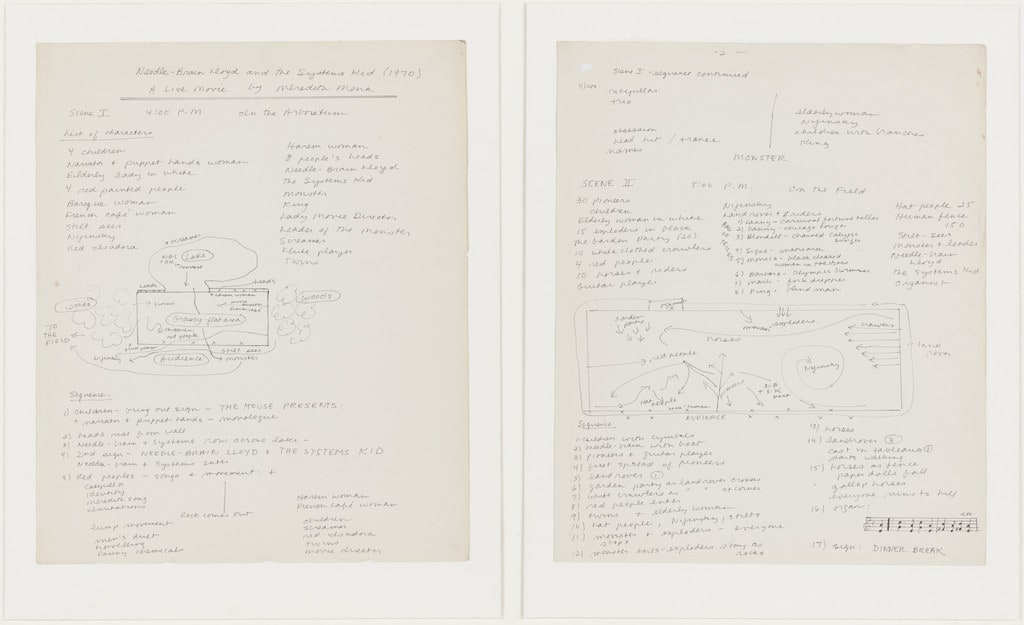 Needle-Brain Lloyd and the Systems Kid (1970)
A Live Movie by Meredith Monk
Scene I 4:00 P.M. On The Arboretum
List of characters
4 children
Narrator + puppet hands woman
Elderly lady in white
4 red painted people
Baroque woman
French café woman
Stilt seer
Nijinsky
Red Isadora
Harem woman
8 people's heads
Needle-Brain Lloyd
The Systems Kid
Monster
King
Lady Movie Director
Leader of the Monster
Screamer
Flute player
Twins
x screamer
NBL
+ SK
Lake
heads
heads
harem woman
Woods
Woods
twins
Grassy-flat area
red people
TO
THE
FIELD
Nijinsky
Audience
Stilt seer
monster
Sequence:
1) Children - bring out sign - THE HOUSE PRESENTS:
+ narrator + puppet hands - monologue
2) heads rise from wall
3) Needle-brain + Systems row across lake -
4) 2nd sign - NEEDLE-BRAIN LLOYD + THE SYSTEMS KID
Needle-brain + Systems enter
Red peoples - songs + movement: +
identity
meredith song
Rock comes out
lump movement
men's duet
travelling
Lanny chemicals
Harem woman
French café woman
children
screamer
red isadora
twins
movie director
-2-
Scene I - sequence continued
trio
obsession
head hit / trance
names
elderly woman
Nijinsky
children with branches
King
MONSTER
SCENE II 5:00 P.M. On The Field
30 pioneers
children
Elderly woman in white
15 exploders in black
The Garden Party (20)
10 white clothed crawlers
4 red people
10 horses + riders
Guitar player
Nijinsky
Landrover + 8 riders
1) Lanny - carnival fortune teller
2) Danny - chicago tough
3) Blondell - chained calypso
singer
4) Signe - matriarch
5) Monica - black cloaked
woman in toe shoes
6) Barbara - Olympic swimmer
7) Mark - fork dropper
8) Ping - blind man
Hat people 25
Human fence
150
Stilt-Seer
Monster + leader
Needle-brain
Lloyd
The Systems Kid
Organist
garden
party
horses
exploders
crawlers
land
rover
red people
Nijinsky
Hat
People
NB
+ S.K
boat
AUDIENCE
Sequence
1) children with cymbals
2) Needle-brain with boat
3) pioneers + guitar player
4) first spread of pioneers
5) landrover ①
6) garden party as landrover crosses
7) white crawlers as " " at corner
8) red people enter
9) twins + elderly woman
10) hat people, Nijinsky, stilts
11) monster + exploders - everyone
stops
12) monster exits - exploders stay as
rocks
13) horses
14) landrover ③
cast in tableaux
starts walking
15) horses as fence
paper dolls fall
" gallop horses
everyone runs to hill
16) organ:
17) sign: DINNER BREAK